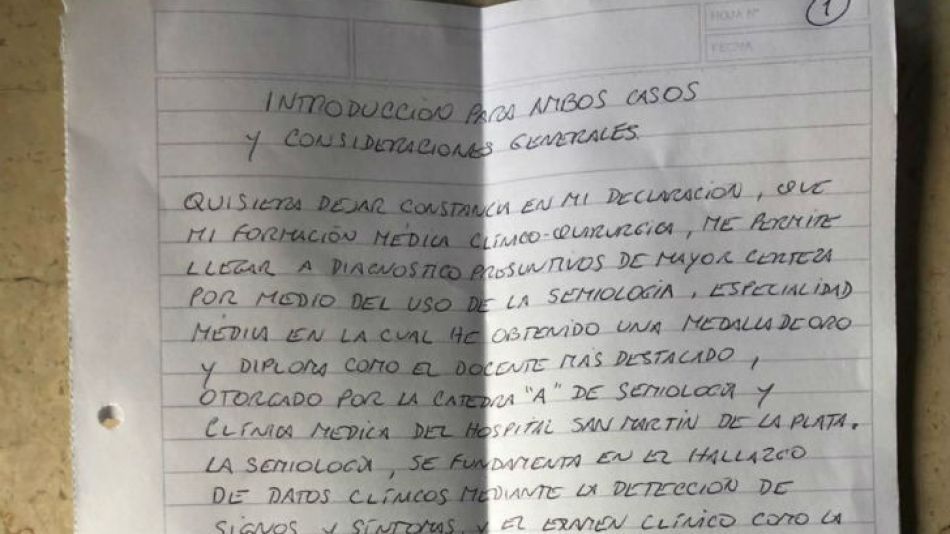 HOJA Nº
1
FECHA
INTRODUCCIÓN PARA AMBOS CASOS
Y CONSIDERACIONES GENERALES.
QUISIERA DEJAR CONSTANCIA EN MI DECLARACIÓN, QUE
MI FORMACIÓN MÉDICA CLÍNICO-QUIRURGICA, ME PERMITE
LLEGAR A DIAGNOSTICO PROSUNTIVOS DE MAYOR CERTEZA
POR MEDIO DEL USO DE LA SEMIOLOGIA, ESPECIALIDAD
MÉDICA EN LA CUAL HE OBTENIDO UNA MEDALLA DE ORO
Y DIPLOMA COMO EL DOCENTE MÁS DESTACADO,
OTORGADO POR LA CATEDRA "A" DE SEMIOLOGÍA Y
CLÍNICA MEDICA DEL HOSPITAL SAN MARTÍN DE LA PLATA.
LA SEMIOLOGÍA, SE FUNDAMENTA EN EL HALLAZGO
DE DATOS CLÍNICOS MEDIANTE LA DETECCION DE
SIGNOS Y SÍNTOMAS, Y EL EXAMEN CLÍNICO COMO LA